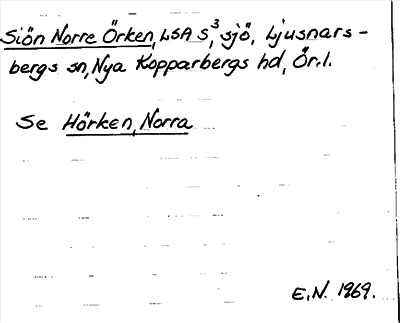 Siön Norre Örken, LSA S³, sjö, Ljusnars-
bergs sn, Nya Kopparbergs hd, Ör.l.
Se Hörken, Norra
E.N. 1969.